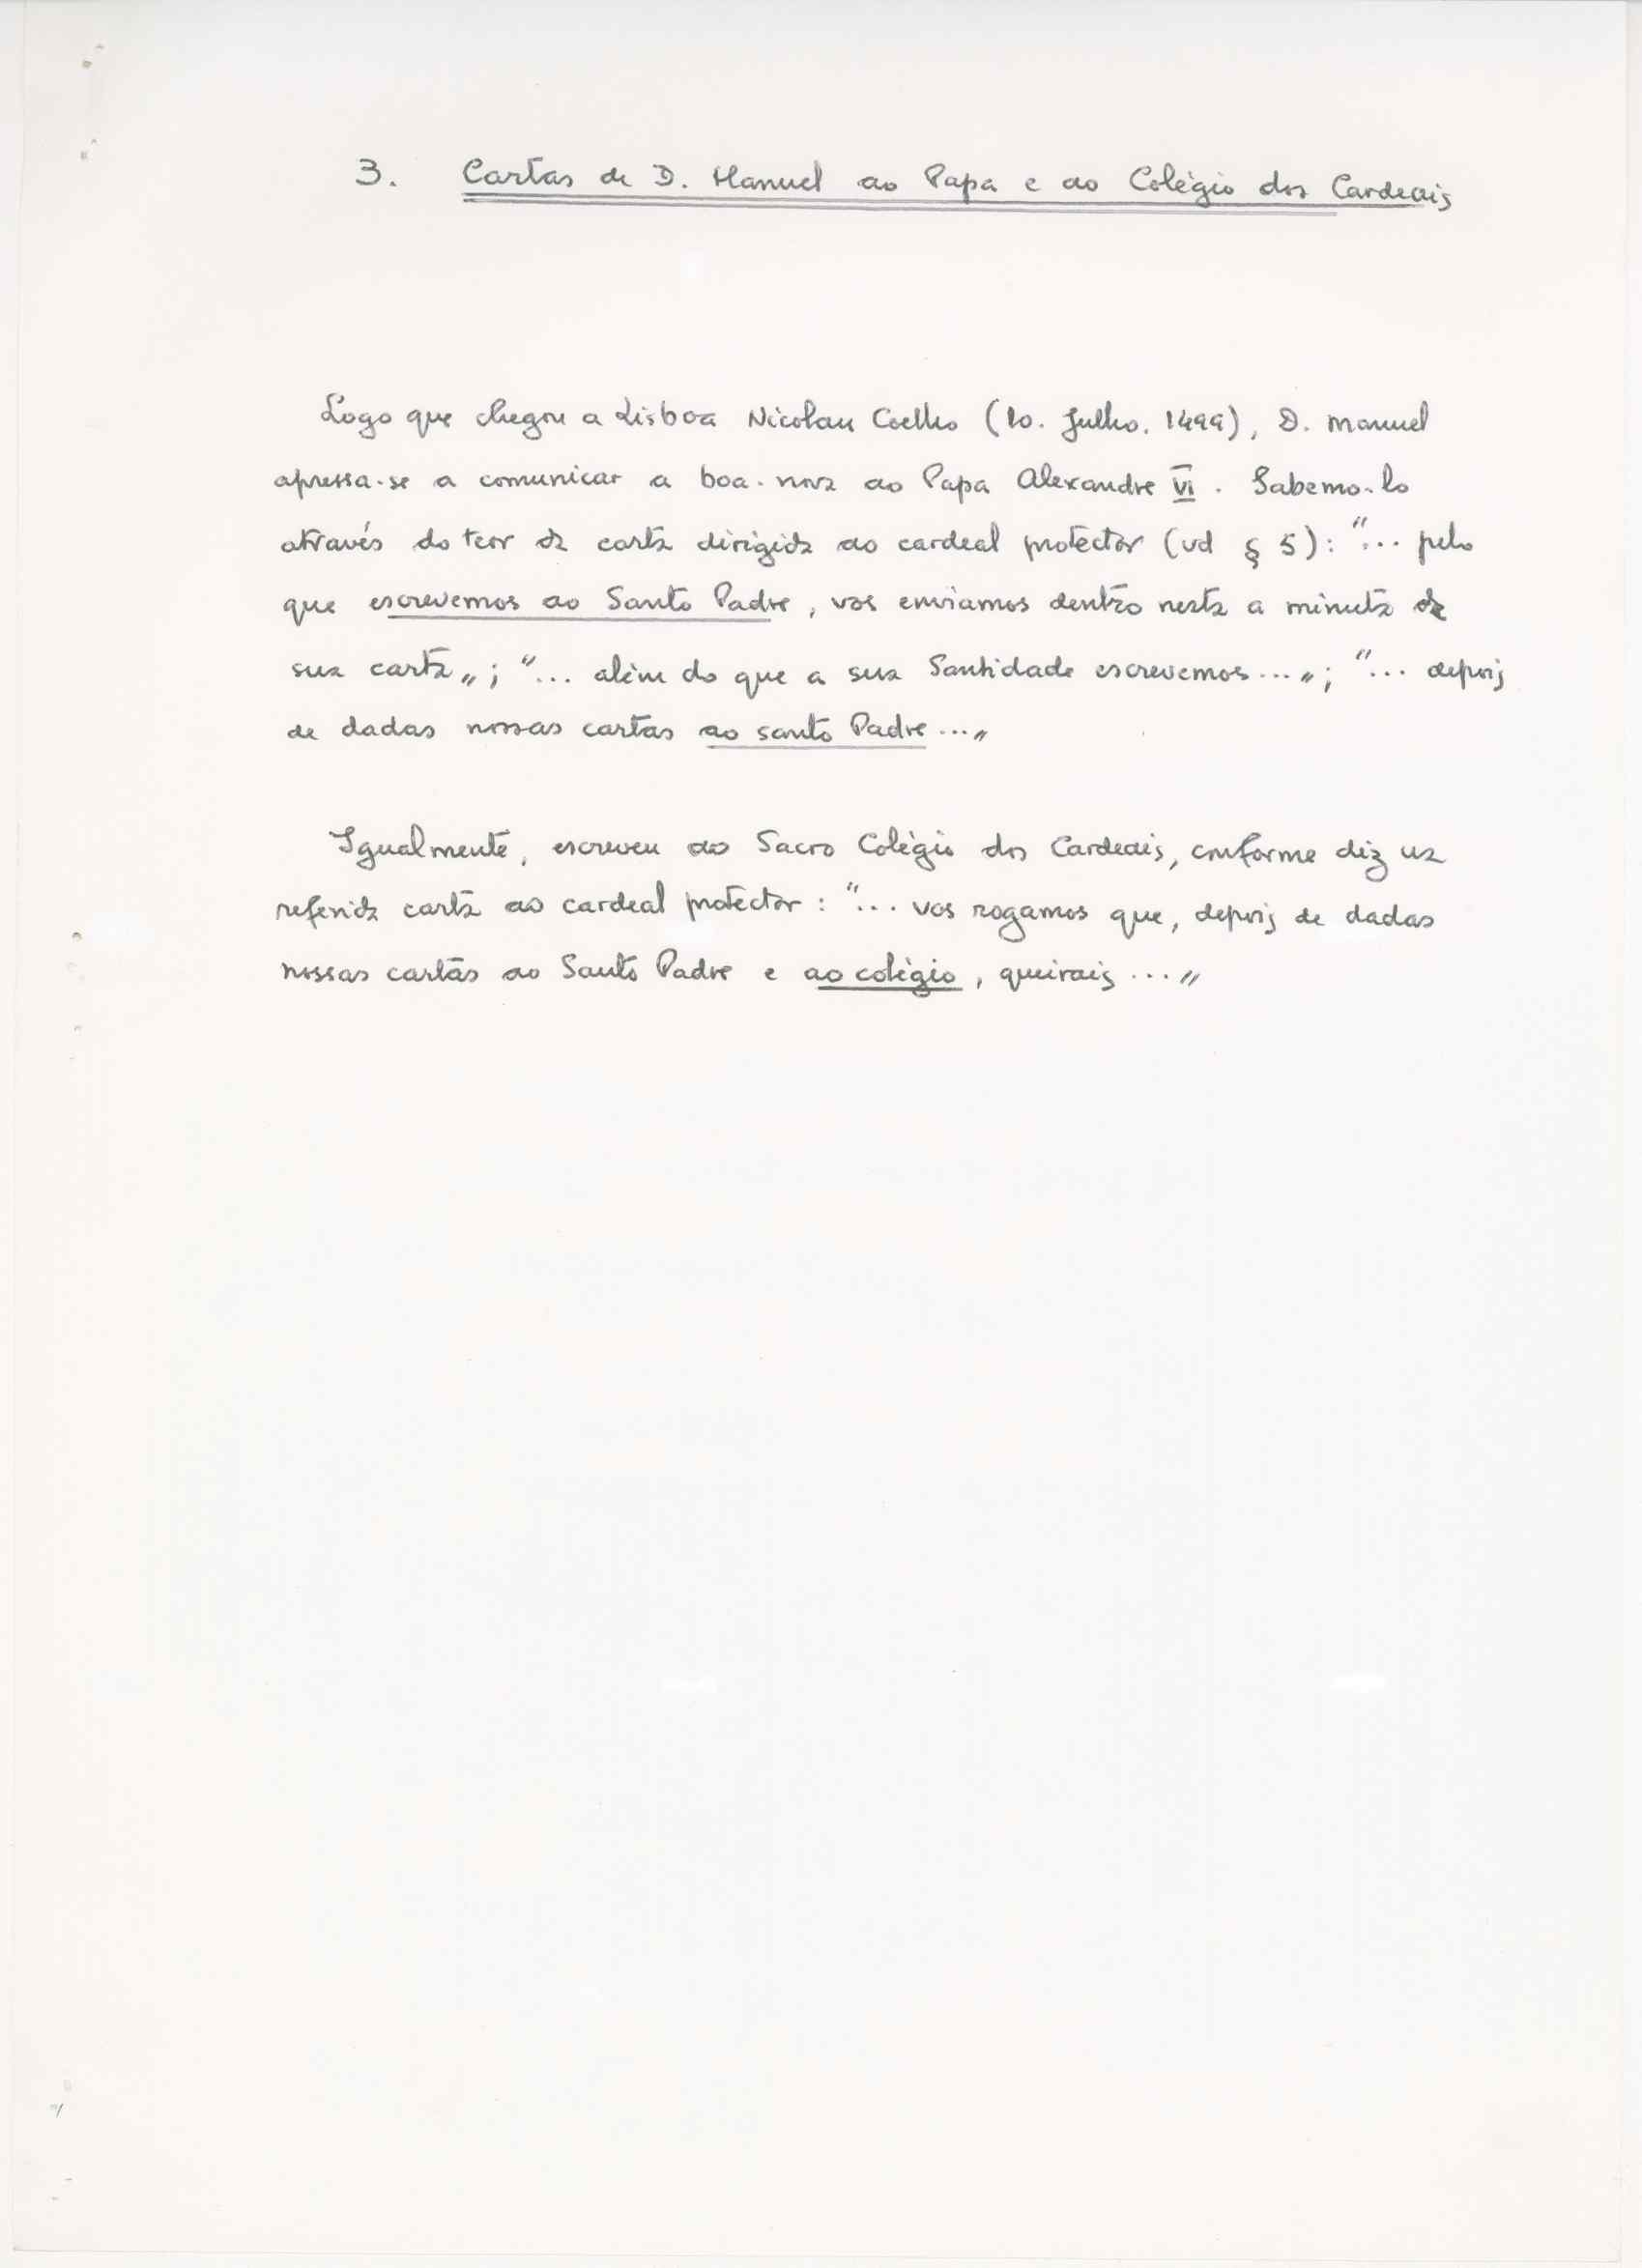 3. Cartas de D. Manuel ao Papa e ao Colégio dos Cardeais
Logo que chegou a Lisboa Nicolau Coelho (10. Julho. 1499), D. Manuel
apressa-se a comunicar a boa-nova ao Papa Alexandre VI. Sabemo-lo
através do teor da carta dirigida ao cardeal protector (vd § 5): "... pelo
que escrevemos ao Santo Padre, vos enviamos dentro nesta a minuta da
sua carta„; "... além do que a sua Santidade escrevemos...„; "... depois
de dadas nossas cartas ao santo Padre...„
Igualmente, escreveu ao Sacro Colégio dos Cardeais, conforme diz na
referida carta ao cardeal protector: "... vos rogamos que, depois de dadas
nossas cartas ao Santo Padre e ao colégio, queirais...„